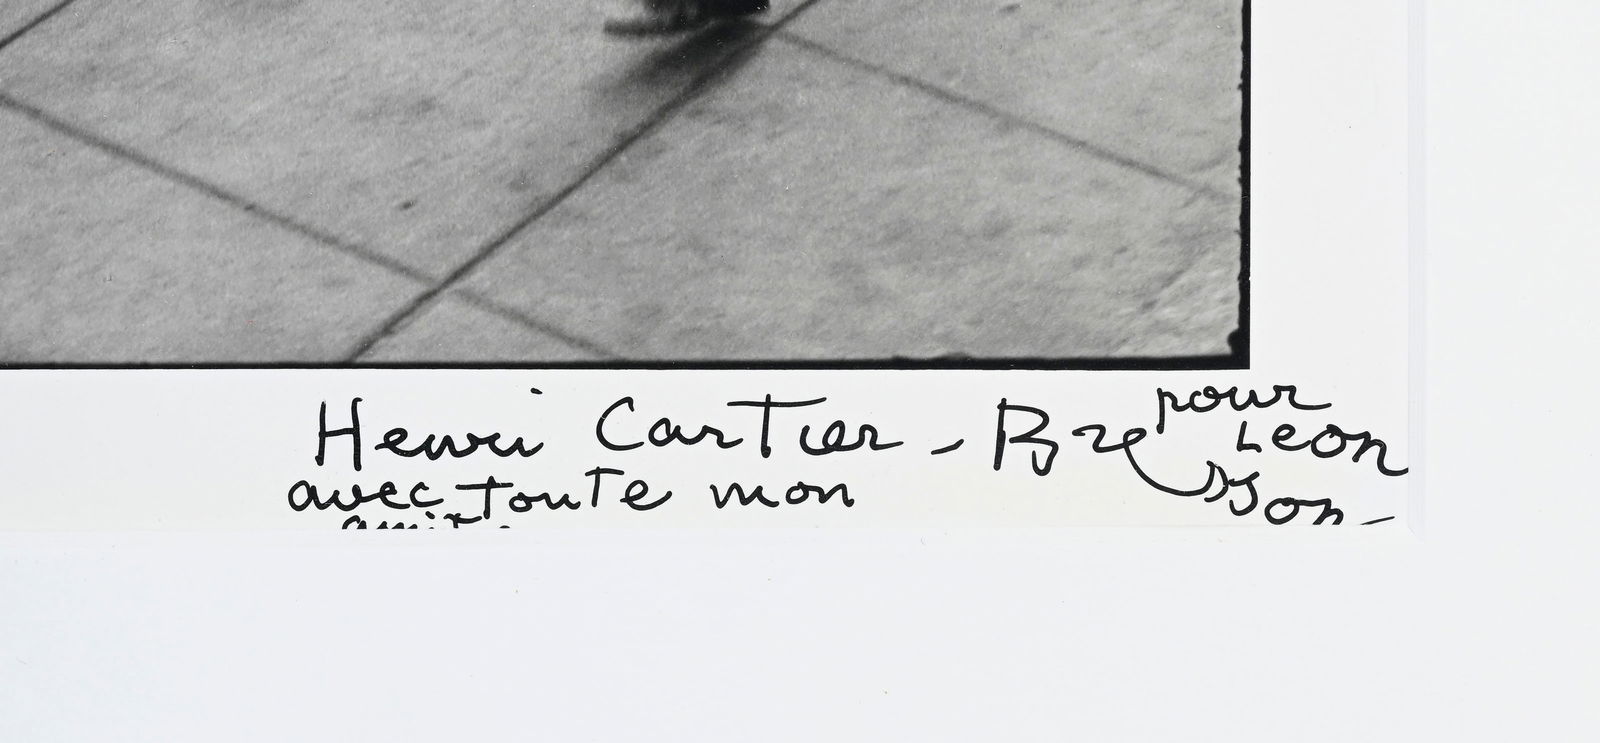 Henri Cartier-Bresson-
pour
Leon
avec toute mon